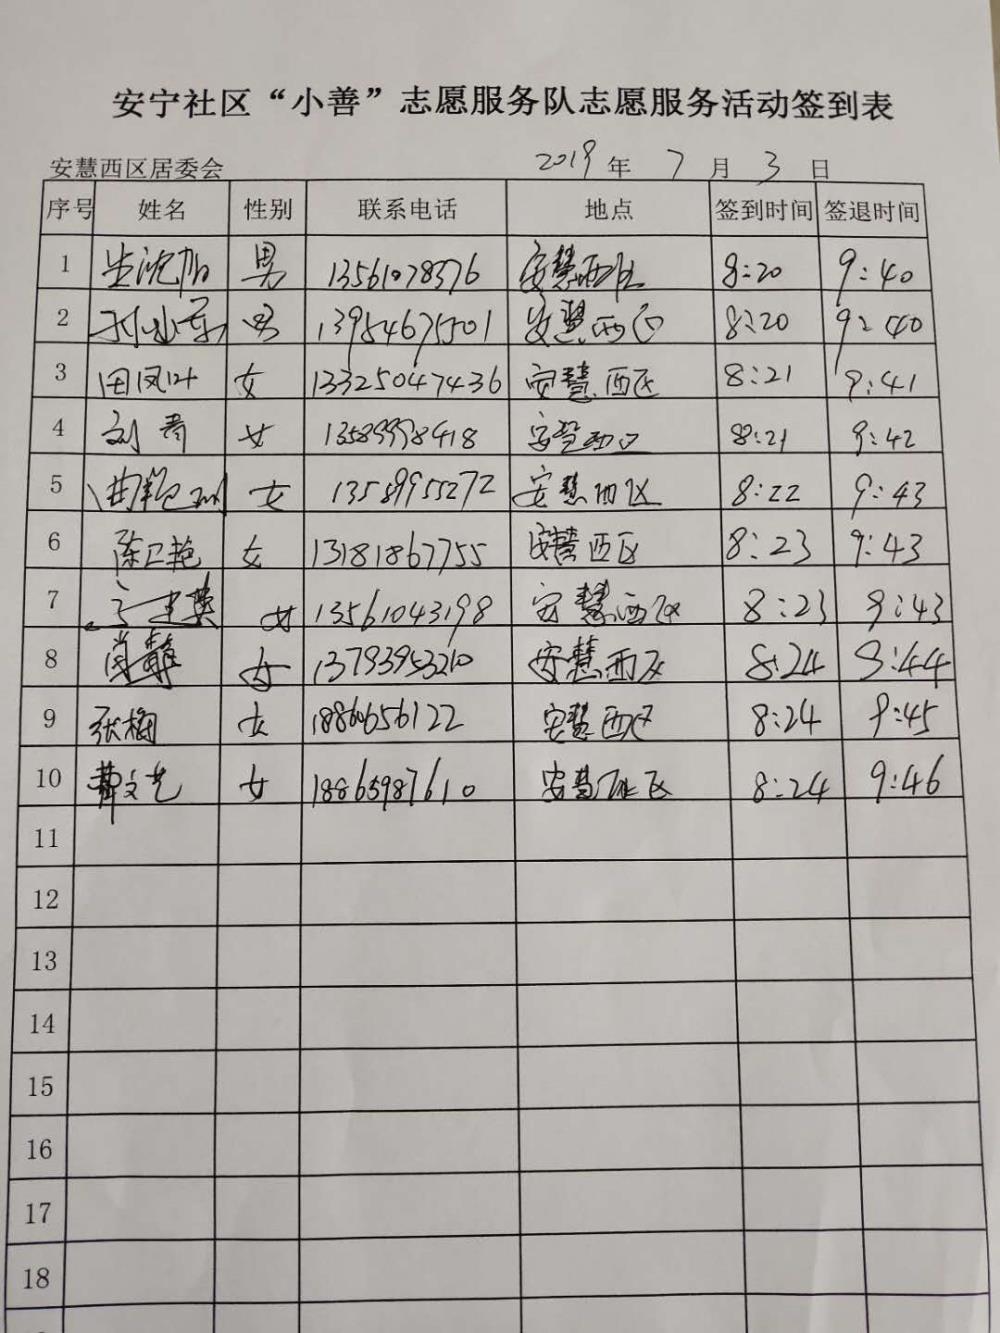 安宁社区“小善”志愿服务队志愿服务活动签到表
安慧西区居委会 2019年7月3日
序号 姓名 性别 联系电话 地点 签到时间 签退时间
1 男 13561078376 安慧西区 8:20 9:40
2 男 13954675501 安慧西区 8:20 9:40
3 田凤叶 女 13325047436 安慧西区 8:21 9:41
4 刘青 女 13589998418 安慧西区 8:21 9:42
5 曲艳丽 女 13589955272 安慧西区 8:22 9:43
6 陈卫艳 女 13181867755 安慧西区 8:23 9:43
7 女 13561043198 安慧西区 8:23 9:43
8 女 13793953210 安慧西区 8:24 9:44
9 张梅 女 18860656122 安慧西区 8:24 9:45
10 女 18865987610 安慧西区 8:24 9:46
11
12
13
14
15
16
17
18